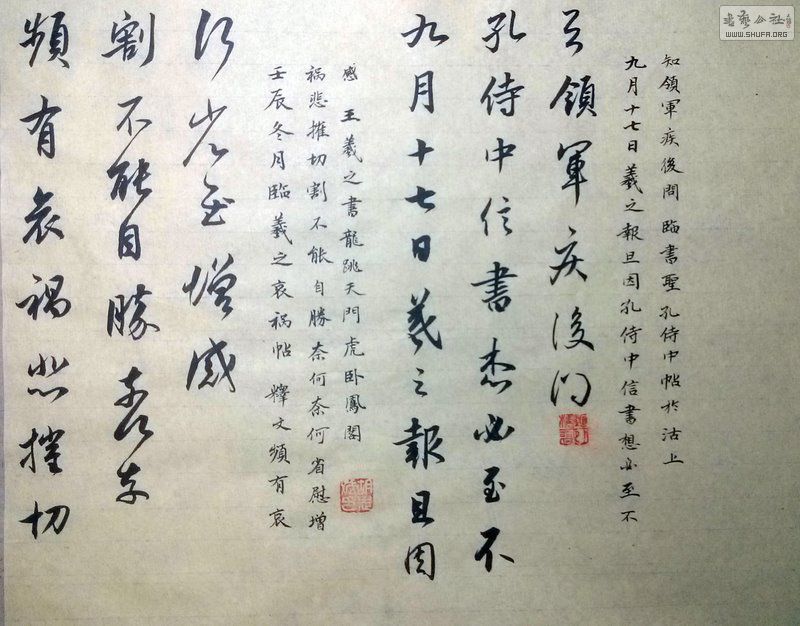 頻有哀禍悲摧切
割不能自勝奈何奈
何省慰增感
壬辰冬月臨羲之哀禍帖 釋文頻有哀
禍悲摧切割不能自勝奈何奈何 省慰增
感 王羲之書龍跳天門虎卧鳳閣
九月十七日羲之報且因
孔侍中信書想必至不
知領軍疾後問
九月十七日羲之報旦因孔侍中信書想必至不
知領軍疾後問 臨書聖孔侍中帖於沽上
書藝公社
WWW.SHUFA.ORG